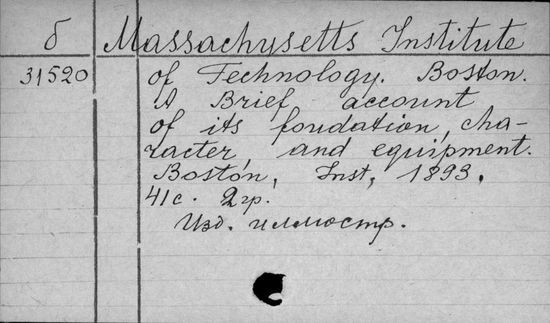 б Massachysetts Institute
31520 of Technology. Boston.
A Brief account
of its foudation, cha-
racter, and equipment.
Boston, Inst, 1893.
41 с. 2 гр.
Изд. иллюстр.